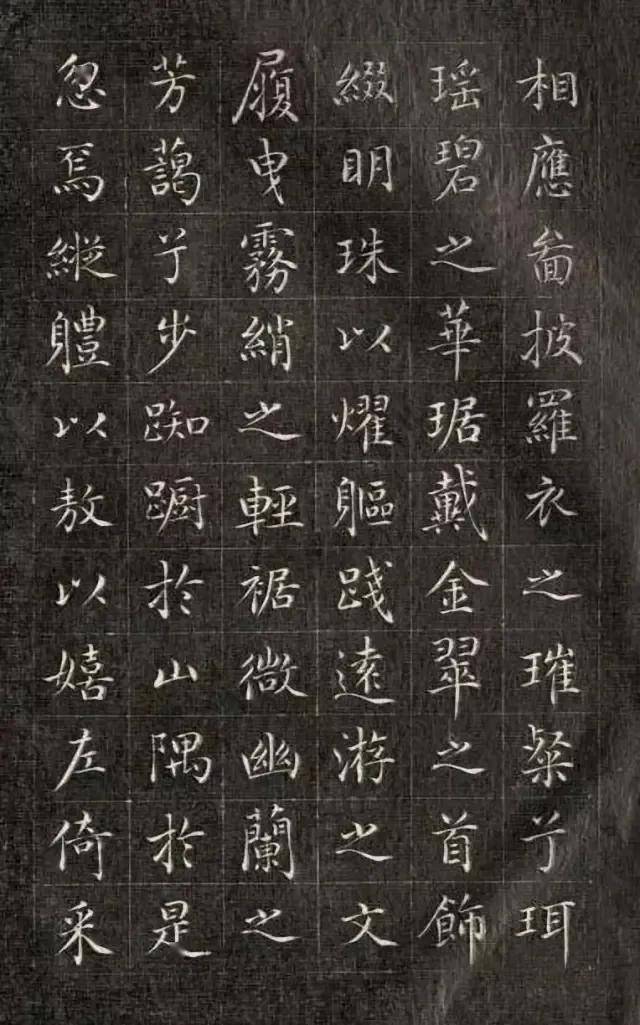 相應啚披羅衣之璀粲兮珥
瑶碧之華琚戴金翠之首飾
綴明珠以燿軀踐遠游之文
履曳霧綃之輕裾微幽蘭之
芳藹兮步踟躕於山隅於是
忽焉縱體以敖以嬉左倚采